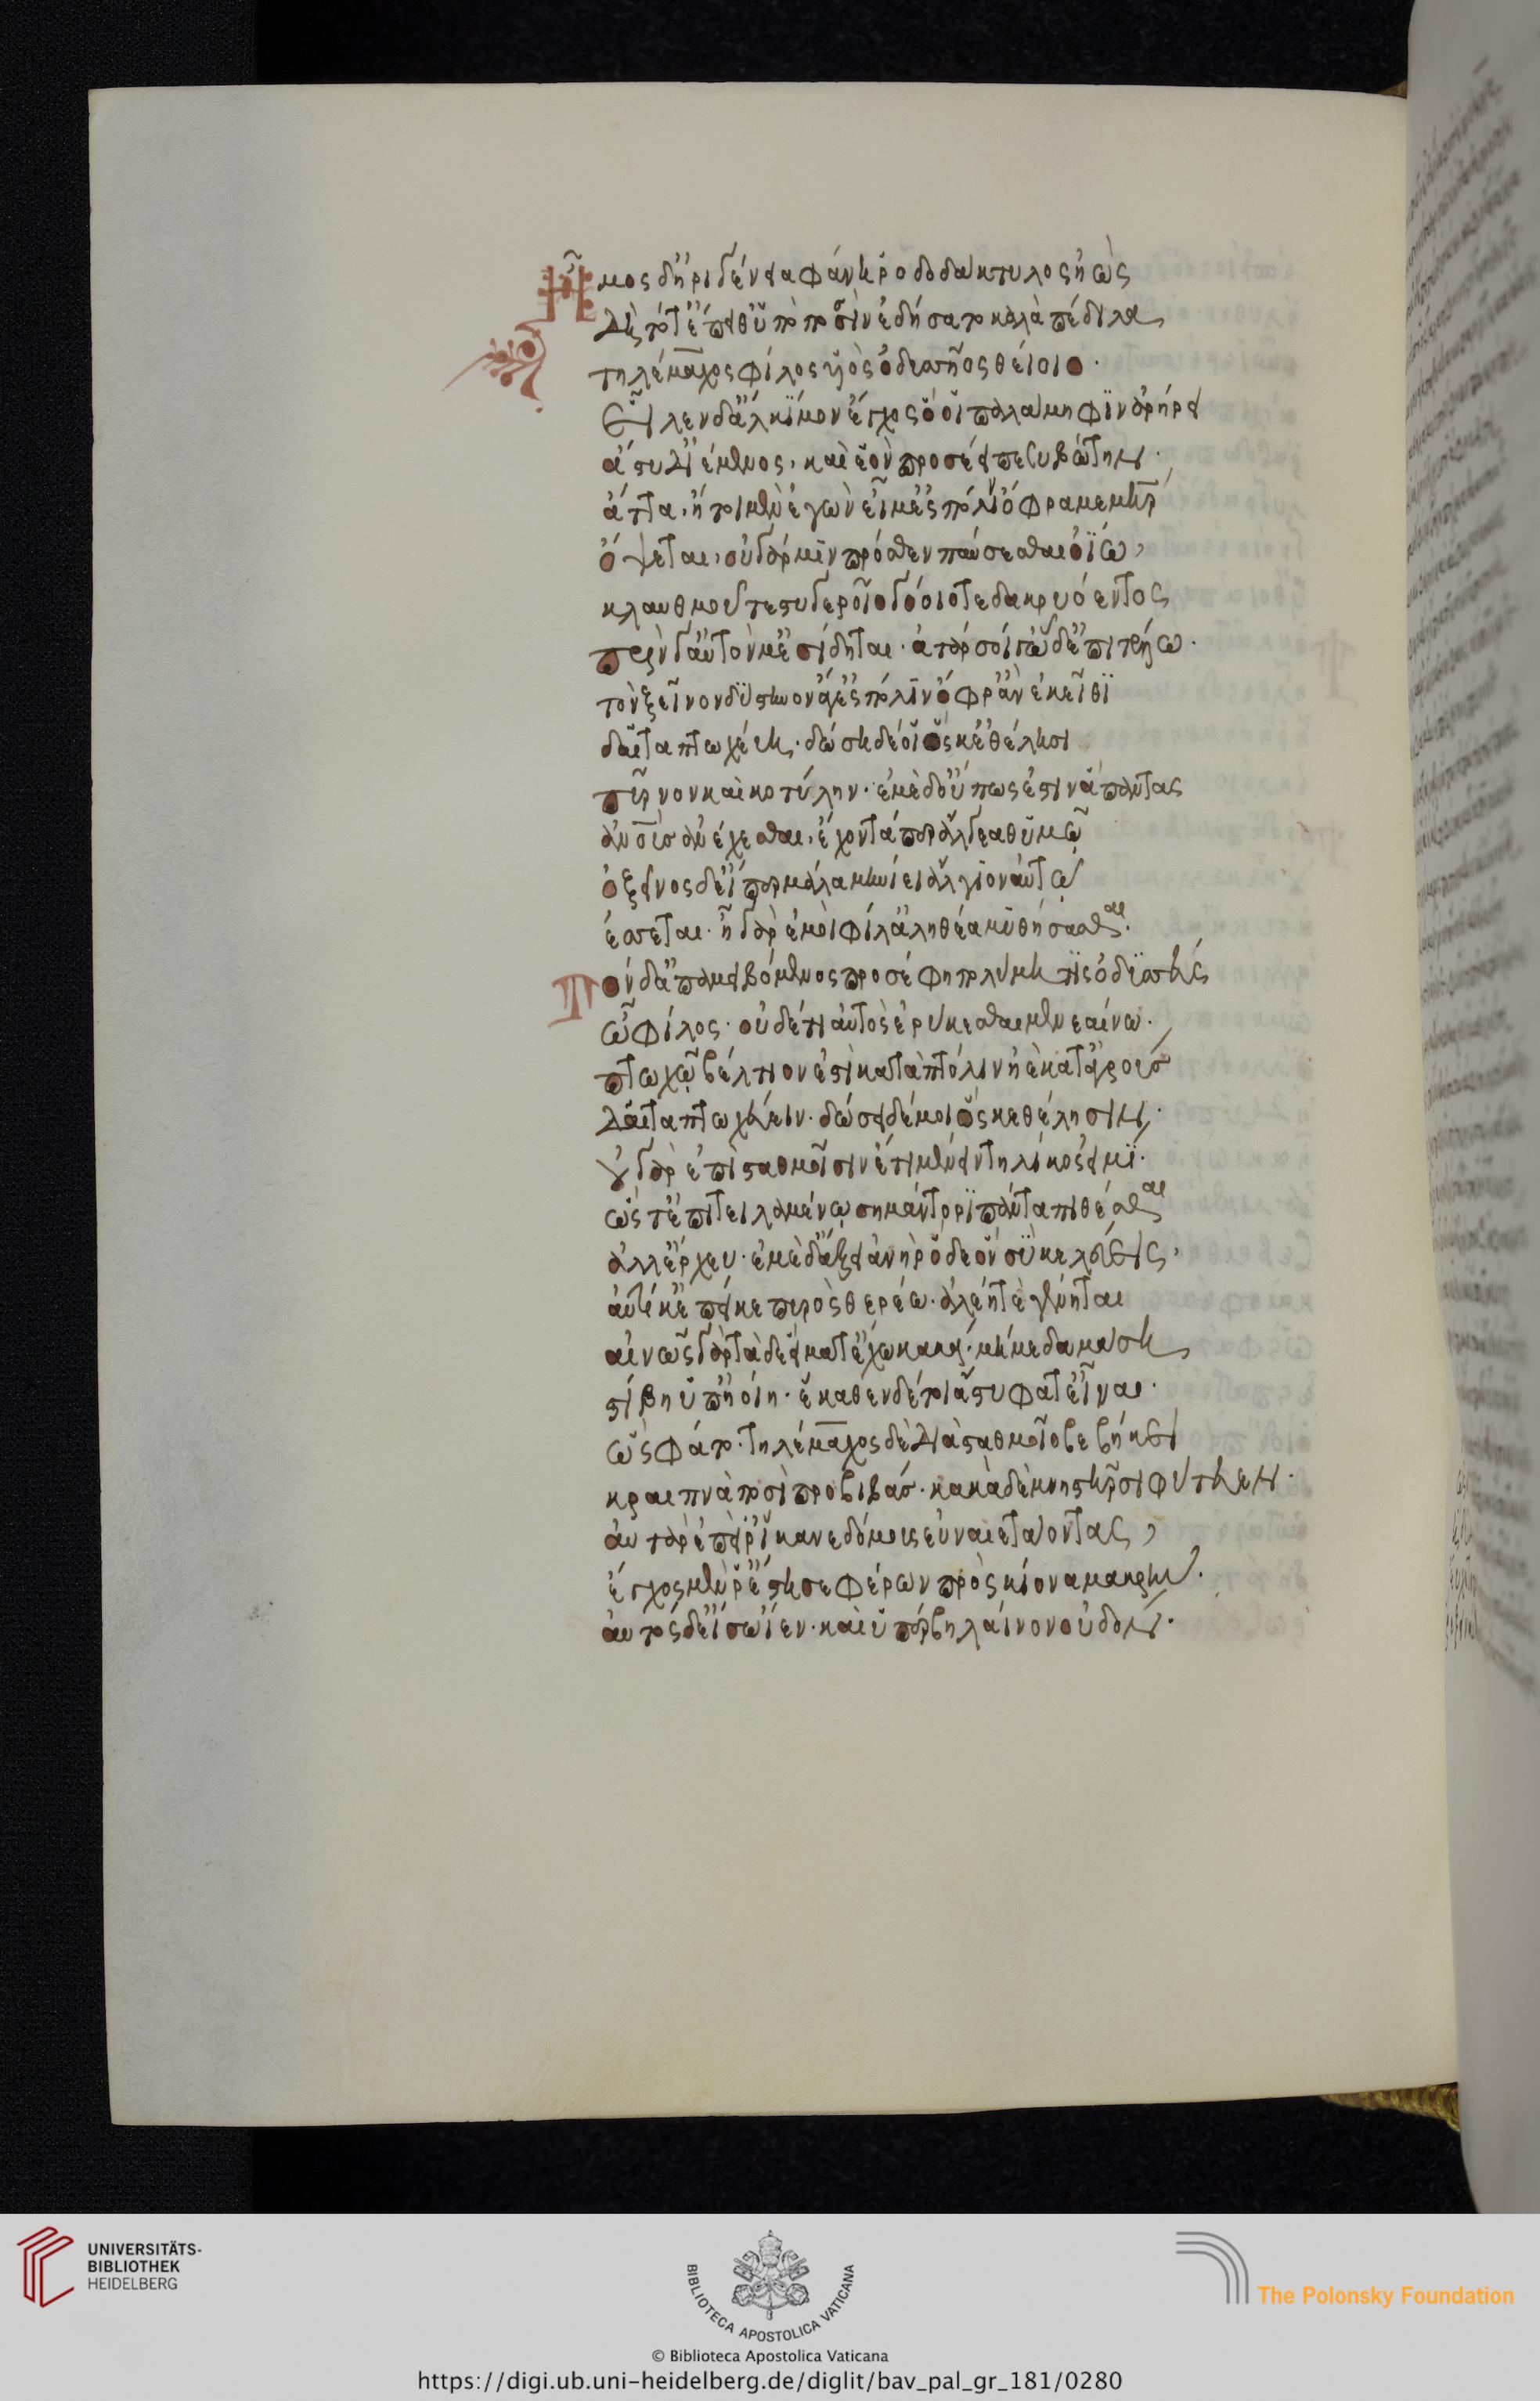 Ἦμος δ' ἠριγένεια φάνη ῥοδοδάκτυλος ἠὼς
δὴ τότ' ἔπειθ' ὑπὸ ποσσὶν ἐδήσατο καλὰ πέδιλα
τηλέμαχος φίλος υἱὸς ὀδυσσῆος θείοιο·
εἵλετο δ' ἄλκιμον ἔγχος ὅ οἱ παλάμηφιν ἀρήρει
ἄστυδε ἱέμενος, καὶ ἑὸν προσέειπε συβώτην·
ἄττα, ἤτοι μὲν ἐγὼν εἶμ' ἐς πόλιν ὄφρα με μήτηρ
ὄψεται, οὐ γάρ μιν πρόσθεν παύσεσθαι ὀΐω,
κλαυθμοῦ τε στυγεροῖο γόοιό τε δακρυόεντος
πρίν γ' αὐτόν με ἴδηται· ἀτὰρ σοί γ' ὧδ' ἐπιτέλλω·
τὸν ξεῖνον δύστηνον ἄγ' ἐς πόλιν ὄφρ' ἂν ἐκεῖθι
δαῖτα πτωχεύῃ· δώσει δέ οἱ ὅς κ' ἐθέλησι
πύρνον καὶ κοτύλην· ἐμὲ δ' οὔπως ἔστιν ἅπαντας
ἀνθρώπους ἀνέχεσθαι, ἔχοντά περ ἄλγεα θυμῷ
ὁ ξεῖνος δ' εἴπερ μάλα μηνίει ἄλγιον αὐτῷ
ἔσσεται· ἦ γὰρ ἐμοὶ φίλ' ἀληθέα μυθήσασθαι·
Τὸν δ' ἀπαμειβόμενος προσέφη πολύμητις ὀδυσσεύς
ὦ φίλος· οὐδέ τοι αὐτὸς ἐρύκεσθαι μενεαίνω·
πτωχῷ βέλτιον ἐστὶ κατὰ πτόλιν ἠὲ κατ' ἀγροὺς
δαῖτα πτωχεύειν· δώσει δέ μοι ὅς κε θέλησιν·
οὐ γὰρ ἐπὶ σταθμοῖσι μένειν ἔτι τηλίκος εἰμί·
ὥς τ' ἐπιτειλαμένῳ σημάντορι πάντα πιθέσθαι
ἀλλ' ἔρχευ· ἐμὲ δ' ἄξει ἀνὴρ ὅδε ὃν σὺ κελεύεις,
αὐτίκ' ἐπεί κε πυρὸς θερέω· ἀλέη τε γένηται
αἰνῶς γὰρ τάδε εἵματ' ἔχω κακά· μή με δαμάσσῃ
στίβη ὑπηοίη· ἕκαθεν δέ τοι ἄστυ φάτ' εἶναι·
ὣς φάτο· τηλέμαχος δὲ διὰ σταθμοῖο βεβήκει
κραιπνὰ ποσὶ προβιβάς· κακὰ δὲ μνηστῆρσι φύτευεν·
αὐτὰρ ἐπεί ῥ' ἵκανε δόμους εὐναιετάοντας,
ἔγχος μέν ῥ' ἔστησε φέρων πρὸς κίονα μακρήν·
αὐτὸς δ' εἴσω ἴεν· καὶ ὑπέρβη λάϊνον οὐδόν·
UNIVERSITÄTS-
BIBLIOTHEK
HEIDELBERG
BIBLIOTECA APOSTOLICA VATICANA
The Polonsky Foundation
© Biblioteca Apostolica Vaticana
https://digi.ub.uni-heidelberg.de/diglit/bav_pal_gr_181/0280